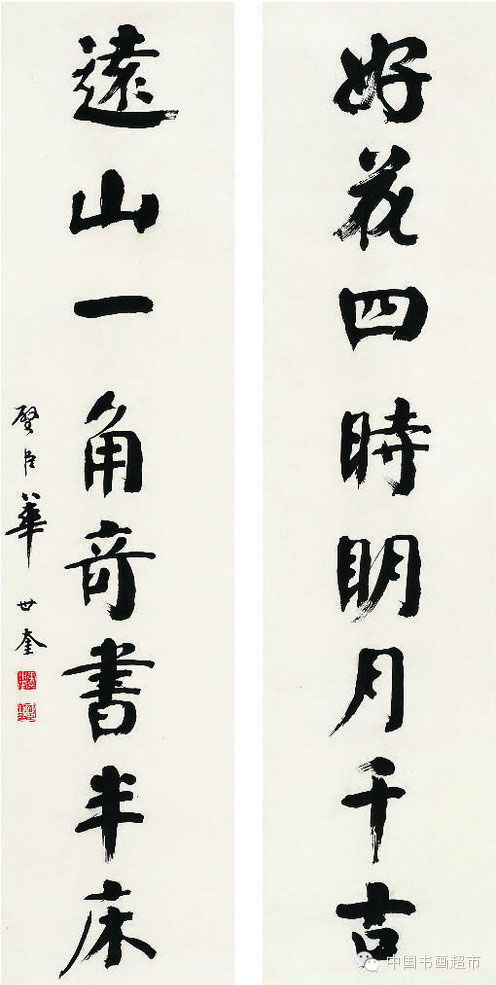 好花四時明月千古
遠山一角奇書半床
璧臣華世奎
中国书画超市